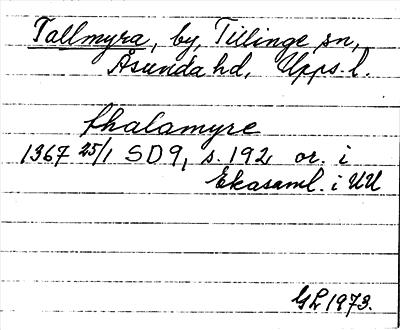 Tallmyra, by, Tillinge sn,
Åsunda hd, Upps. l.
thalamyre
1367 25/1 SD9, s. 192 or. i
Ekasaml. i UU
GL 1973.